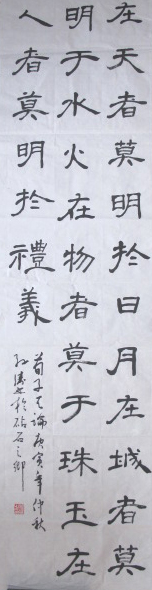 在天者莫明於日月在城者莫
明于水火在物者莫于珠玉在
人者莫明於禮義
荀子天論庚寅年仲秋
於砧石之鄉